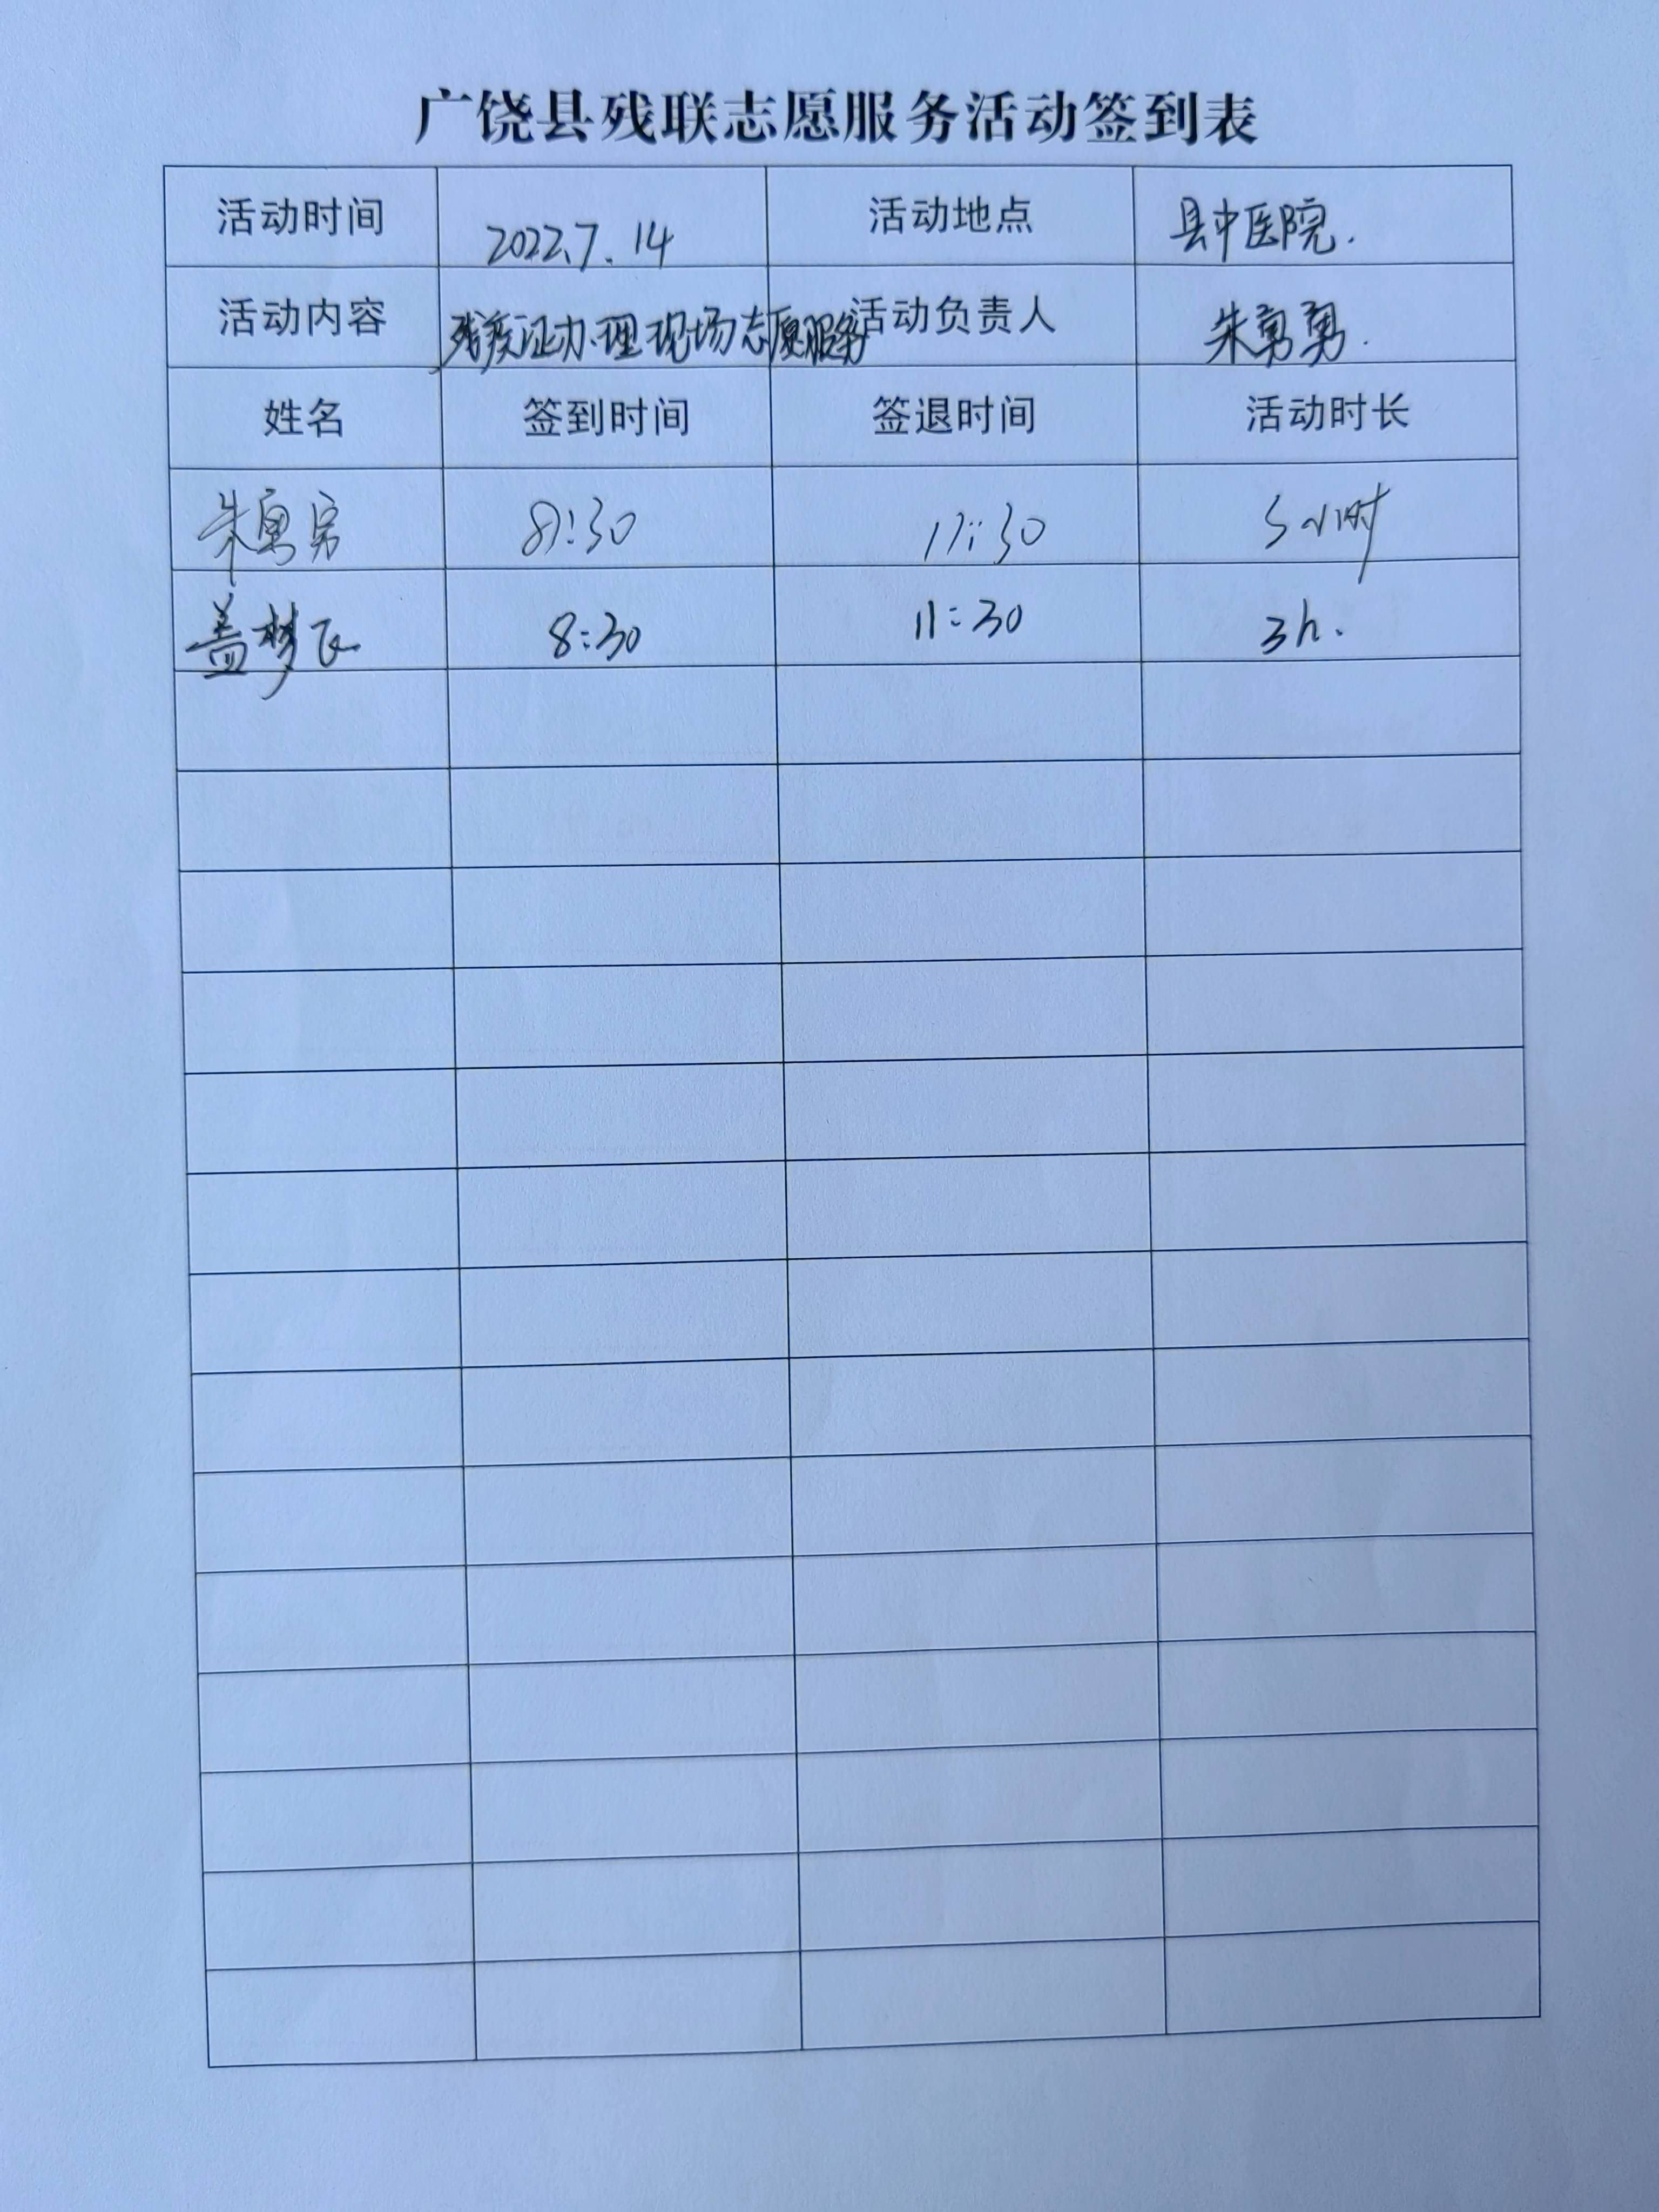 广饶县残联志愿服务活动签到表
活动时间 2022.7.14 活动地点 县中医院.
活动内容 残疾证办理现场志愿服务 活动负责人 朱勇勇.
姓名 签到时间 签退时间 活动时长
朱勇勇 8:30 11:30 3小时
盖梦飞 8:30 11:30 3h.